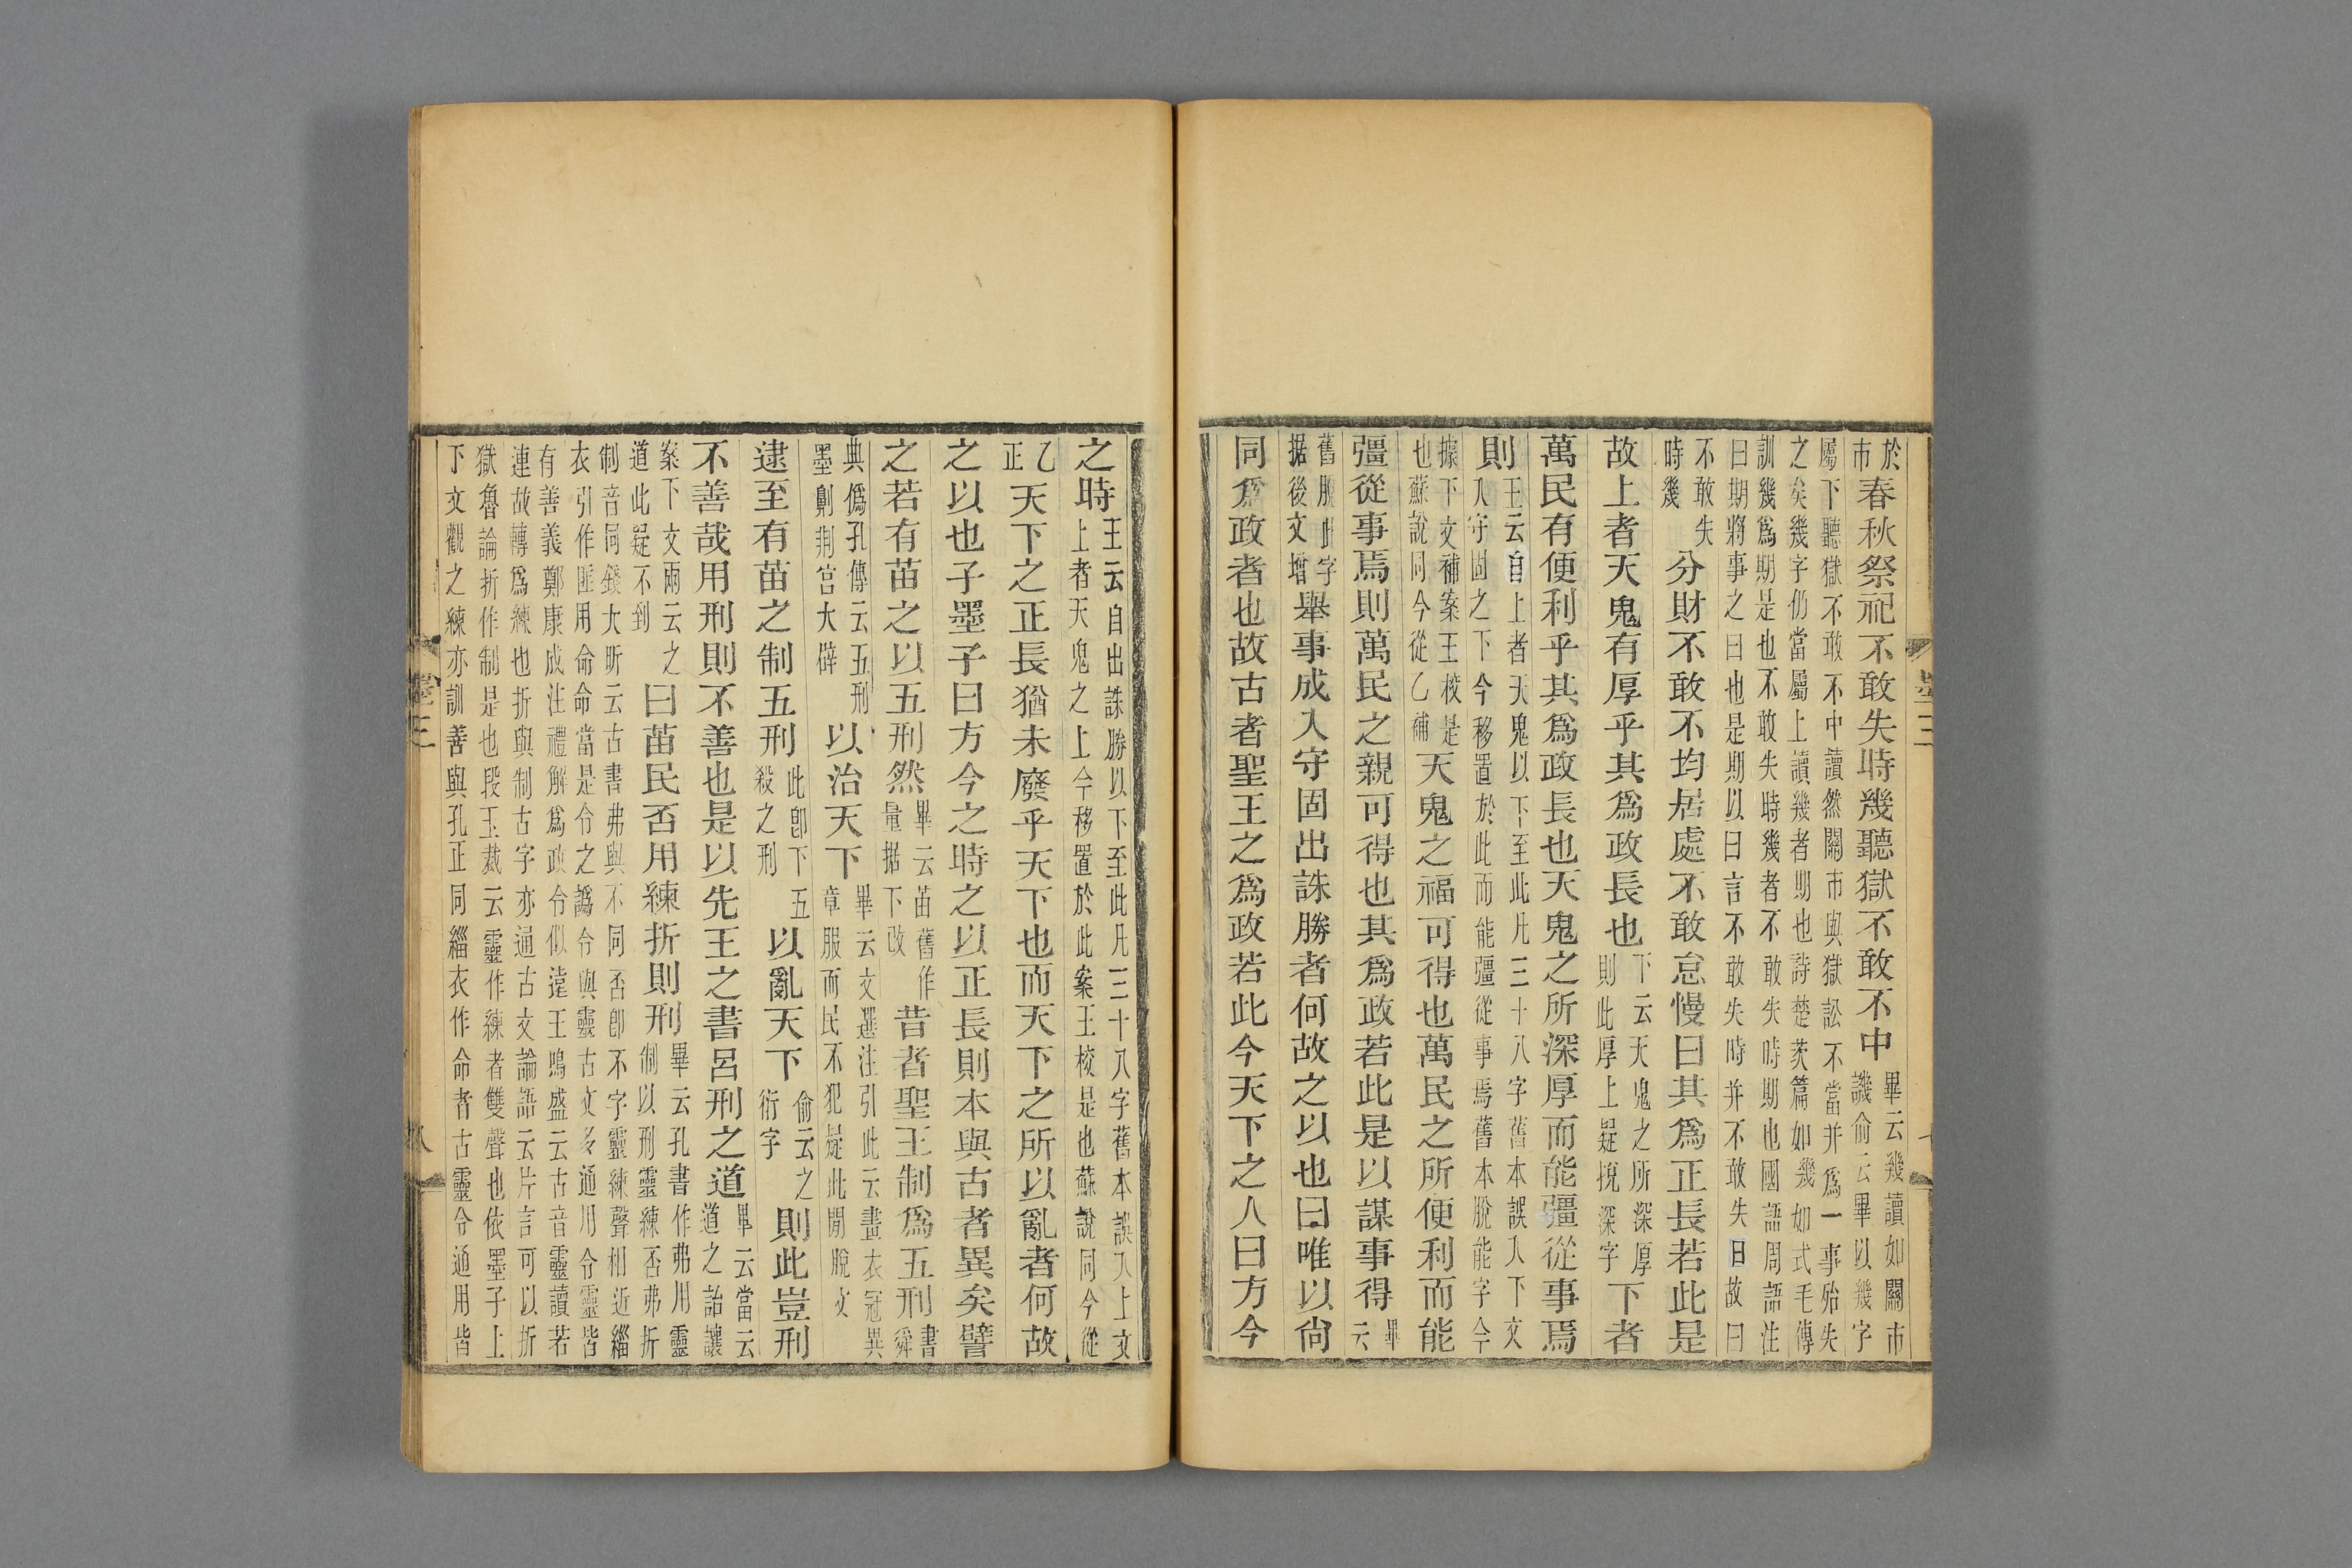 於
市
春秋祭祀不敢失時幾聽獄不敢不中
畢云幾讀如關市
譏俞云畢以幾字
屬下聽獄不敢不中讀然關市與獄訟不當并爲一事殆失
之矣幾字仍當屬上讀幾者期也詩楚茨篇如幾如式毛傳
訓幾爲期是也不敢失時幾者不敢失時期也國語周語注
曰期將事之日也是期以日言不敢失時并不敢失日故曰
不敢失
時幾
分財不敢不均居處不敢怠慢曰其爲正長若此是
故上者天鬼有厚乎其爲政長也
下云天鬼之所深厚
則此厚上疑挩深字
下者
萬民有便利乎其爲政長也天鬼之所深厚而能彊從事焉
則
王云自上者天鬼以下至此凡三十八字舊本誤入下文
入守固之下今移置於此而能彊從事焉舊本脫能字今
據下文補案王校是
也蘇說同今從乙補
天鬼之福可得也萬民之所便利而能
彊從事焉則萬民之親可得也其爲政若此是以謀事得
畢
云
舊脫此字
据後文增
舉事成入守固出誅勝者何故之以也曰唯以尙
同爲政者也故古者聖王之爲政若此今天下之人曰方今
之時
王云自出誅勝以下至此凡三十八字舊本誤入上文
上者天鬼之上今移置於此案王校是也蘇說同今從
乙
正
天下之正長猶未廢乎天下也而天下之所以亂者何故
之以也子墨子曰方今之時之以正長則本與古者異矣譬
之若有苗之以五刑然
畢云苗舊作
量据下改
昔者聖王制爲五刑
書
舜
典僞孔傳云五刑
墨劓剕宮大辟
以治天下
畢云文選注引此云畫衣冠異
章服而民不犯疑此閒脫文
逮至有苗之制五刑
此卽下五
殺之刑
以亂天下
俞云之
衍字
則此豈刑
不善哉用刑則不善也是以先王之書呂刑之道
畢云當云
道之詒讓
案下文兩云之
道此疑不到
曰苗民否用練折則刑
畢云孔書作弗用靈
制以刑靈練否弗折
制音同錢大昕云古書弗與不同否卽不字靈練聲相近緇
衣引作匪用命命當是令之譌令與靈古文多通用令靈皆
有善義鄭康成注禮解爲政令似遠王鳴盛云古音靈讀若
連故轉爲練也折與制古字亦通古文論語云片言可以折
獄魯論折作制是也段玉裁云靈作練者雙聲也依墨子上
下文觀之練亦訓善與孔正同緇衣作命者古靈令通用皆
墨三
八